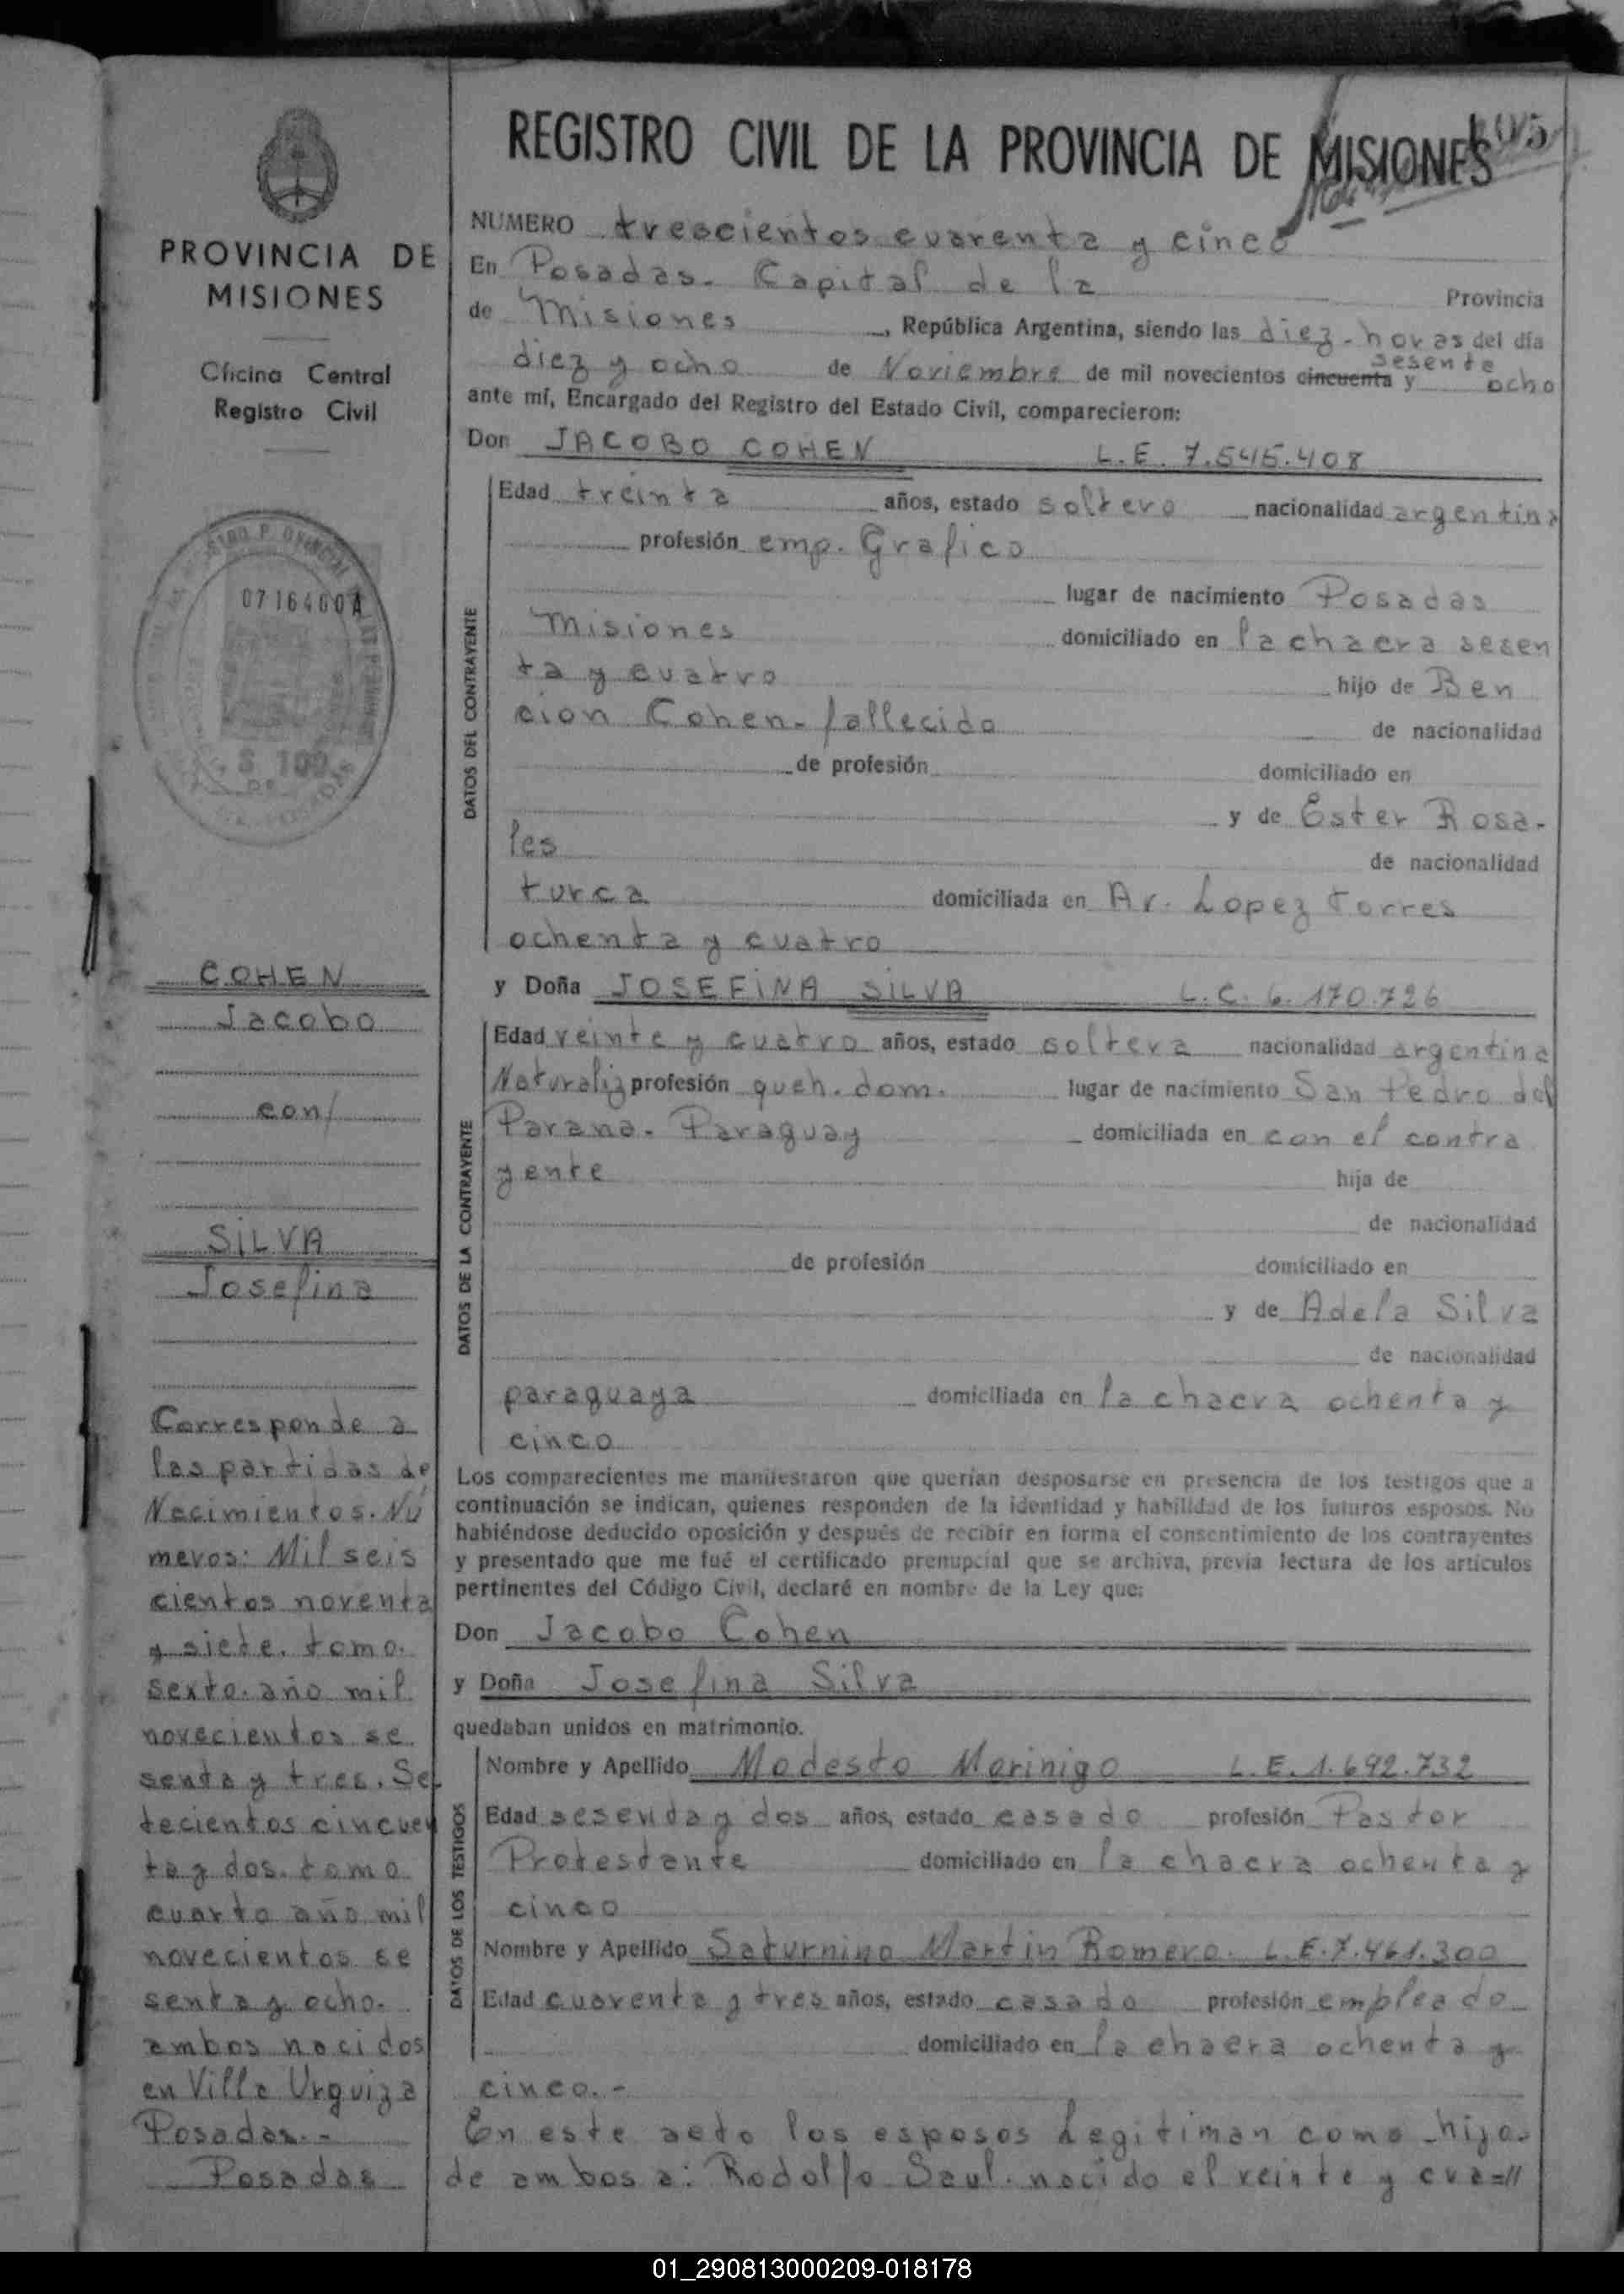 REGISTRO CIVIL DE LA PROVINCIA DE MISIONES
PROVINCIA DE
MISIONES
Oficina Central
Registro Civil
0716460A
$ 100
COHEN
Jacobo
con/
SILVA
Josefina
Corresponde a
las partidas de
Nacimientos. Nú
meros: Mil seis
cientos noventa
y siete. tomo.
sexto. año mil
novecientos se
senta y tres. Se
tecientos cincuen
ta y dos. tomo
cuarto año mil
novecientos se
senta y ocho.
ambos nacidos
en Villa Urquiza
Posadas.-
Posadas
NUMERO trescientos cuarenta y cinco
En Posadas. Capital de la Provincia
de Misiones, República Argentina, siendo las diez. horas del día
diez y ocho de Noviembre de mil novecientos cincuenta y sesenta ocho
ante mí, Encargado del Registro del Estado Civil, comparecieron:
Don JACOBO COHEN L.E. 7.545.408
DATOS DEL CONTRAYENTE
Edad treinta años, estado soltero nacionalidad argentina
profesión emp. Grafico
lugar de nacimiento Posadas
Misiones domiciliado en la chacra sesen
ta y cuatro hijo de Ben
cion Cohen. fallecido de nacionalidad
de profesión domiciliado en
y de Ester Rosa-
les de nacionalidad
turca domiciliada en Av. Lopez Torres
ochenta y cuatro
y Doña JOSEFINA SILVA L.C. 6.170.726
DATOS DE LA CONTRAYENTE
Edad veinte y cuatro años, estado soltera nacionalidad argentina
Naturaliz profesión queh. dom. lugar de nacimiento San Pedro del
Parana. Paraguay domiciliada en con el contra
yente hija de
de nacionalidad
de profesión domiciliado en
y de Adela Silva
de nacionalidad
paraguaya domiciliada en la chacra ochenta y
cinco
Los comparecientes me manifestaron que querían desposarse en presencia de los testigos que a
continuación se indican, quienes responden de la identidad y habilidad de los futuros esposos. No
habiéndose deducido oposición y después de recibir en forma el consentimiento de los contrayentes
y presentado que me fué el certificado prenupcial que se archiva, previa lectura de los artículos
pertinentes del Código Civil, declaré en nombre de la Ley que:
Don Jacobo Cohen
y Doña Josefina Silva
quedaban unidos en matrimonio.
DATOS DE LOS TESTIGOS
Nombre y Apellido Modesto Marinigo L.E. 1.692.732
Edad sesenta y dos años, estado casado profesión Pastor
Protestante domiciliado en la chacra ochenta y
cinco
Nombre y Apellido Saturnino Martin Romero. L.E. 7.461.300
Edad cuarenta y tres años, estado casado profesión empleado
domiciliado en la chacra ochenta y
cinco.-
En este acto los esposos Legitiman como hijo.
de ambos a: Rodolfo Saul. nacido el veinte y cua=//
01_290813000209-018178